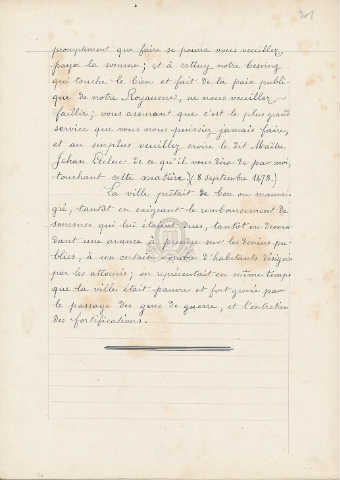 301
promptement que faire se pourra vous veuillez
payer la somme ; et à cestuy notre besoing
qui touche le bien et fait de la paix publi-
que de notre Royaume, ne nous veuillez
faillir ; vous assurant que c'est le plus grand
service que vous nous puissiez jamais faire,
et au surplus veuillez croire le dit Maître
Jehan Leclerc de ce qu'il vous dira de par moi,
touchant cette matière. (8 septembre 1478.)
La ville prêtait de bon ou mauvais
gré, tantôt en exigeant le remboursement de
sommes qui lui étaient dues, tantôt en
dant une avance à prendre sur les deniers pu-
blics, à un certain nombre d'habitants désignés
par les attournés ; on représentait en même temps
que la ville était pauvre et fort grevée par
le passage des gens de guerre, et l'entretien
des fortifications.